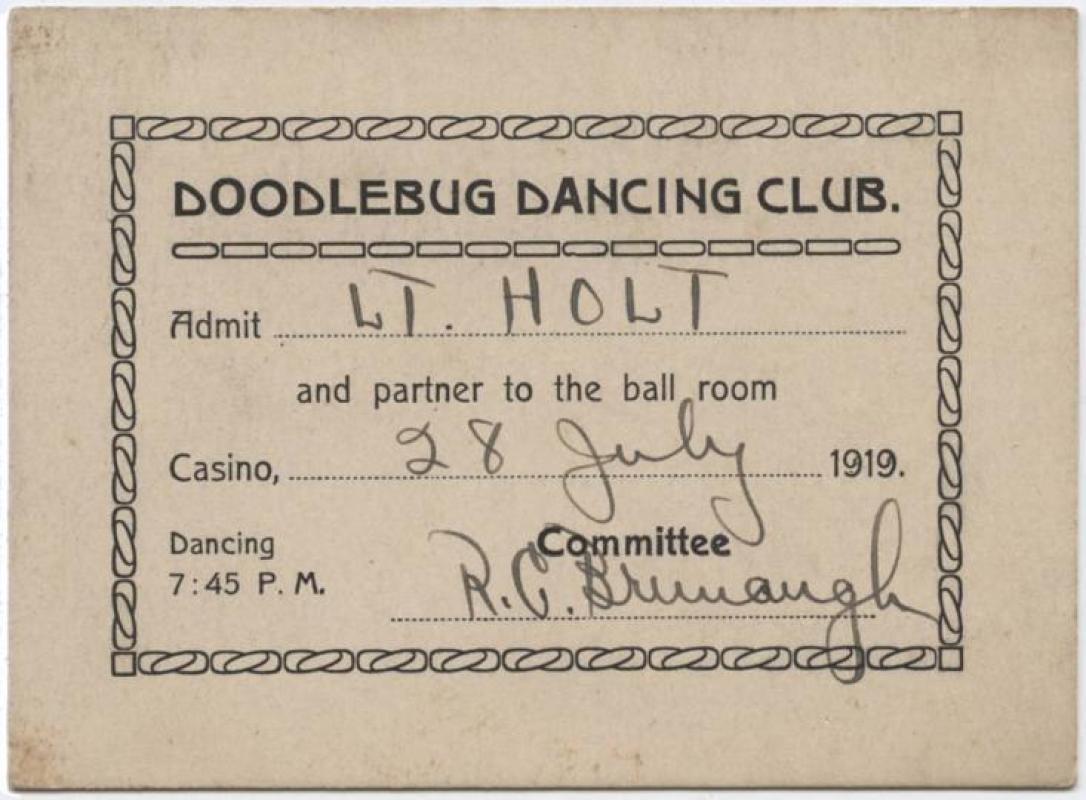 DOODLEBUG DANCING CLUB.
Admit LT. HOLT
and partner to the ball room
Casino, 28 July 1919.
Dancing
7:45 P. M.
Committee
R.C. Brumaugh